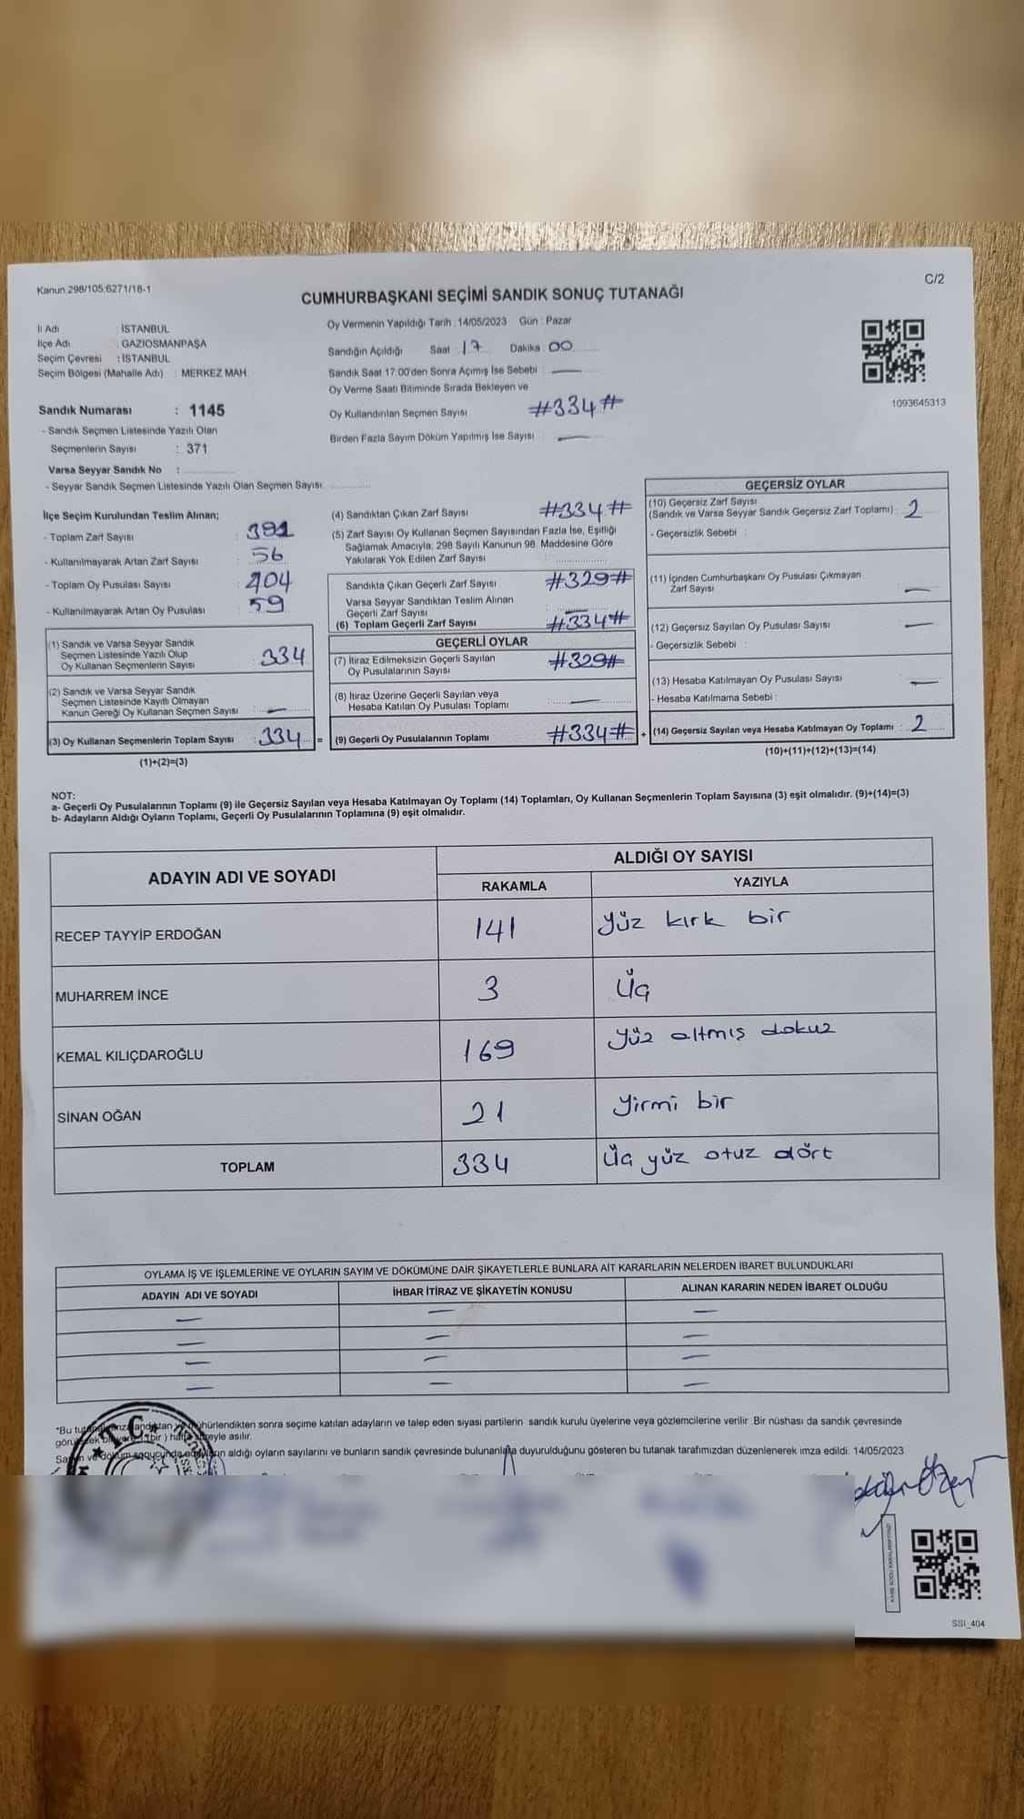 Kanun 298/105:6271/18-1
C/2
CUMHURBAŞKANI SEÇİMİ SANDIK SONUÇ TUTANAĞI
İl Adı : İSTANBUL
İlçe Adı : GAZİOSMANPAŞA
Seçim Çevresi : İSTANBUL
Seçim Bölgesi (Mahalle Adı) : MERKEZ MAH.
Oy Vermenin Yapıldığı Tarih : 14/05/2023 Gün : Pazar
Sandığın Açıldığı Saat 17 Dakika 00
Sandık Saat 17:00'den Sonra Açımış İse Sebebi —
Oy Verme Saati Bitiminde Sırada Bekleyen ve
Oy Kullandırılan Seçmen Sayısı #334#
Birden Fazla Sayım Döküm Yapılmış İse Sayısı —
1093645313
Sandık Numarası : 1145
- Sandık Seçmen Listesinde Yazılı Olan
Seçmenlerin Sayısı : 371
Varsa Seyyar Sandık No :
- Seyyar Sandık Seçmen Listesinde Yazılı Olan Seçmen Sayısı
İlçe Seçim Kurulundan Teslim Alınan;
- Toplam Zarf Sayısı :
- Kullanılmayarak Artan Zarf Sayısı : 56
- Toplam Oy Pusulası Sayısı : 404
- Kullanılmayarak Artan Oy Pusulası : 59
(1) Sandık ve Varsa Seyyar Sandık
Seçmen Listesinde Yazılı Olup
Oy Kullanan Seçmenlerin Sayısı 334
(2) Sandık ve Varsa Seyyar Sandık
Seçmen Listesinde Kayıtlı Olmayan
Kanun Gereği Oy Kullanan Seçmen Sayısı —
(3) Oy Kullanan Seçmenlerin Toplam Sayısı 334 =
(1)+(2)=(3)
(4) Sandıktan Çıkan Zarf Sayısı #334#
(5) Zarf Sayısı Oy Kullanan Seçmen Sayısından Fazla İse, Eşitliği
Sağlamak Amacıyla, 298 Sayılı Kanunun 98. Maddesine Göre
Yakılarak Yok Edilen Zarf Sayısı
Sandıkta Çıkan Geçerli Zarf Sayısı #329#
Varsa Seyyar Sandıktan Teslim Alınan
Geçerli Zarf Sayısı —
(6) Toplam Geçerli Zarf Sayısı #334#
GEÇERLİ OYLAR
(7) İtiraz Edilmeksizin Geçerli Sayılan
Oy Pusulalarının Sayısı #329#
(8) İtiraz Üzerine Geçerli Sayılan veya
Hesaba Katılan Oy Pusulası Toplamı —
(9) Geçerli Oy Pusulalarının Toplamı #334# +
GEÇERSİZ OYLAR
(10) Geçersiz Zarf Sayısı
(Sandık ve Varsa Seyyar Sandık Geçersiz Zarf Toplamı) 2
- Geçersizlik Sebebi :
(11) İçinden Cumhurbaşkanı Oy Pusulası Çıkmayan
Zarf Sayısı —
(12) Geçersiz Sayılan Oy Pusulası Sayısı —
- Geçersizlik Sebebi :
(13) Hesaba Katılmayan Oy Pusulası Sayısı —
- Hesaba Katılmama Sebebi :
(14) Geçersiz Sayılan veya Hesaba Katılmayan Oy Toplamı 2
(10)+(11)+(12)+(13)=(14)
NOT:
a- Geçerli Oy Pusulalarının Toplamı (9) ile Geçersiz Sayılan veya Hesaba Katılmayan Oy Toplamı (14) Toplamları, Oy Kullanan Seçmenlerin Toplam Sayısına (3) eşit olmalıdır. (9)+(14)=(3)
b- Adayların Aldığı Oyların Toplamı, Geçerli Oy Pusulalarının Toplamına (9) eşit olmalıdır.
ADAYIN ADI VE SOYADI
ALDIĞI OY SAYISI
RAKAMLA YAZIYLA
RECEP TAYYİP ERDOĞAN 141 Yüz kırk bir
MUHARREM İNCE 3 Üç
KEMAL KILIÇDAROĞLU 169 Yüz altmış dokuz
SİNAN OĞAN 21 Yirmi bir
TOPLAM 334 Üç yüz otuz dört
OYLAMA İŞ VE İŞLEMLERİNE VE OYLARIN SAYIM VE DÖKÜMÜNE DAİR ŞİKAYETLERLE BUNLARA AİT KARARLARIN NELERDEN İBARET BULUNDUKLARI
ADAYIN ADI VE SOYADI İHBAR İTİRAZ VE ŞİKAYETİN KONUSU ALINAN KARARIN NEDEN İBARET OLDUĞU
— — —
— — —
— — —
— — —
*Bu mühürlendikten sonra seçime katılan adayların ve talep eden siyasi partilerin sandık kurulu üyelerine ve gözlemcilerine verilir. Bir nüshası da sandık çevresinde
(bir) hafta süreyle asılır.
aldığı oyların sayılarını ve bunların sandık çevresinde bulunanlara duyurulduğunu gösteren bu tutanak tarafımızdan düzenlenerek imza edildi. 14/05/2023
T.C.
SSI_404